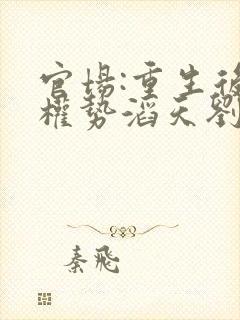 官場:重生後
權勢滔天劉
秦飛